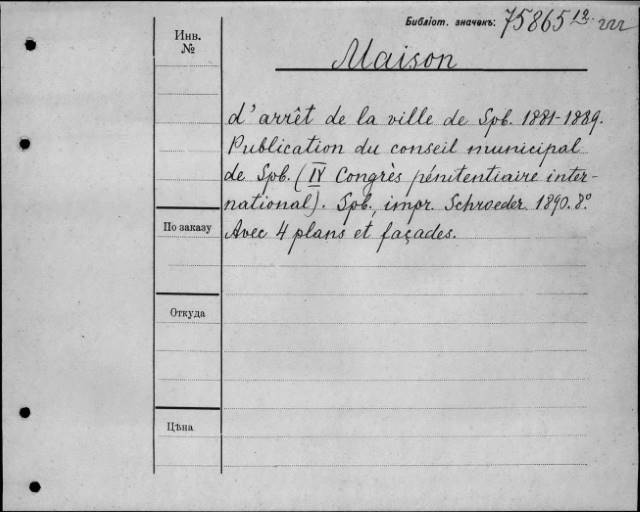 Библіот. значекъ: 75865 12.
Инв.
№
Maison
d'arrêt de la ville de Spb. 1881-1889.
Publication du conseil municipal
de Spb. (IV Congrès pénitentiaire inter-
national). Spb., impr. Schroeder. 1890. 8º
По заказу
Avec 4 plans et façades.
Откуда
Цѣна